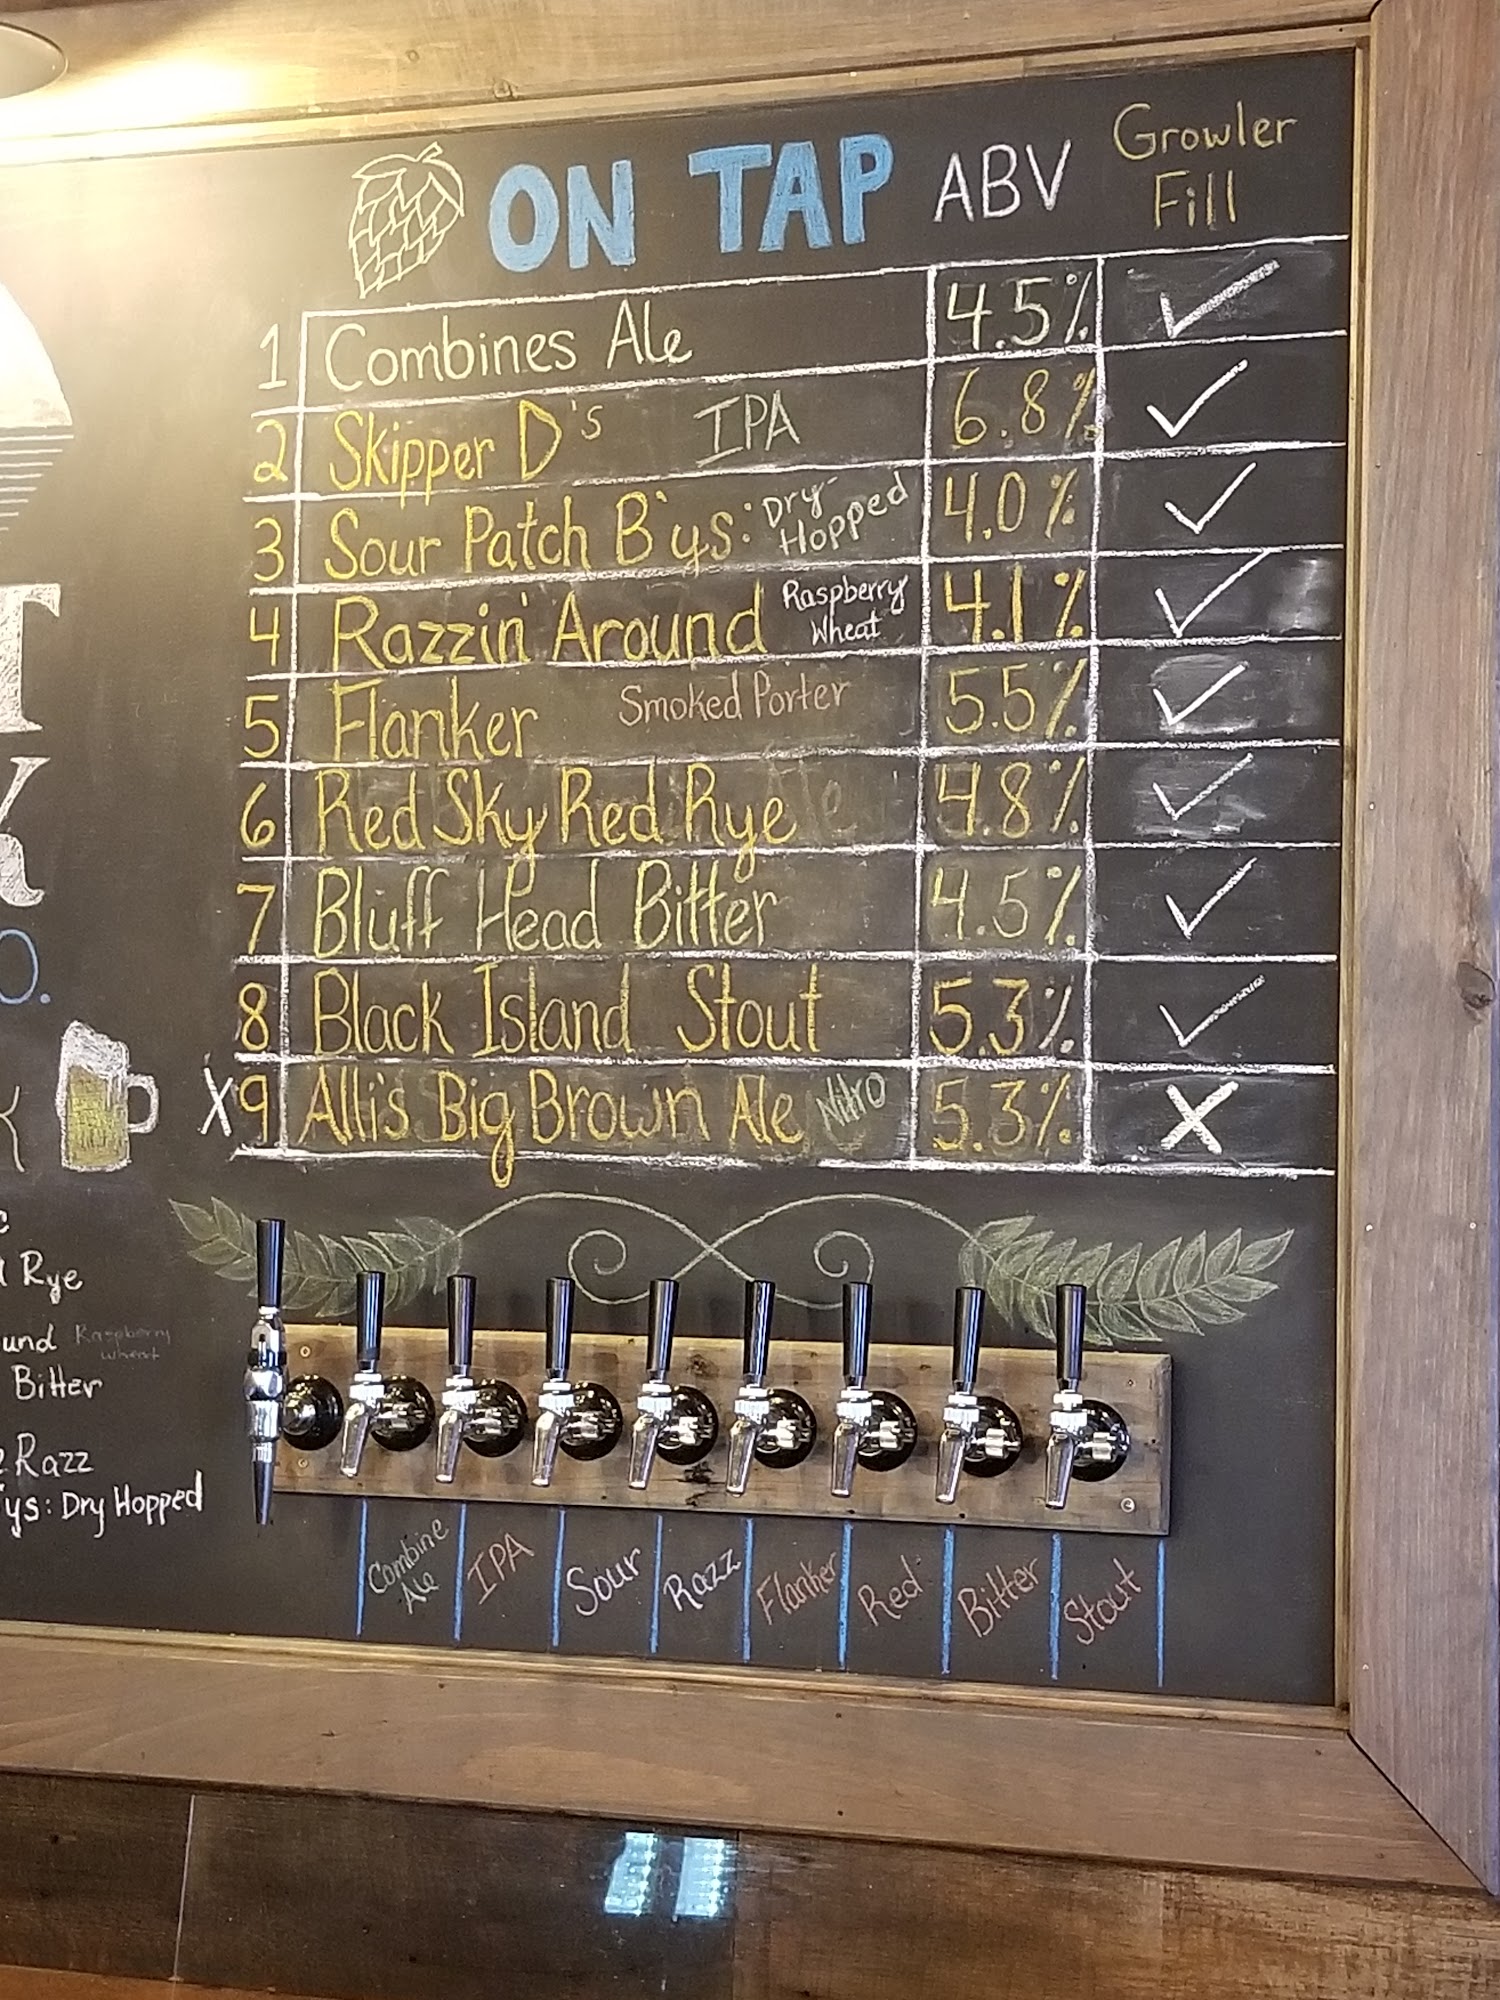 ON TAP ABV Growler Fill
1 Combines Ale 4.5%
2 Skipper D's IPA 6.8%
3 Sour Patch B'ys: Dry-Hopped 4.0%
4 Razzin' Around Raspberry Wheat 4.1%
5 Flanker Smoked Porter 5.5%
6 Red Sky Red Rye 4.8%
7 Bluff Head Bitter 4.5%
8 Black Island Stout 5.3%
X9 Alli's Big Brown Ale Nitro 5.3% X
Rye
Raspberry
wheat
Bitter
Razz
Dry Hopped
Combine Ale
IPA
Sour
Razz
Flanker
Red
Bitter
Stout